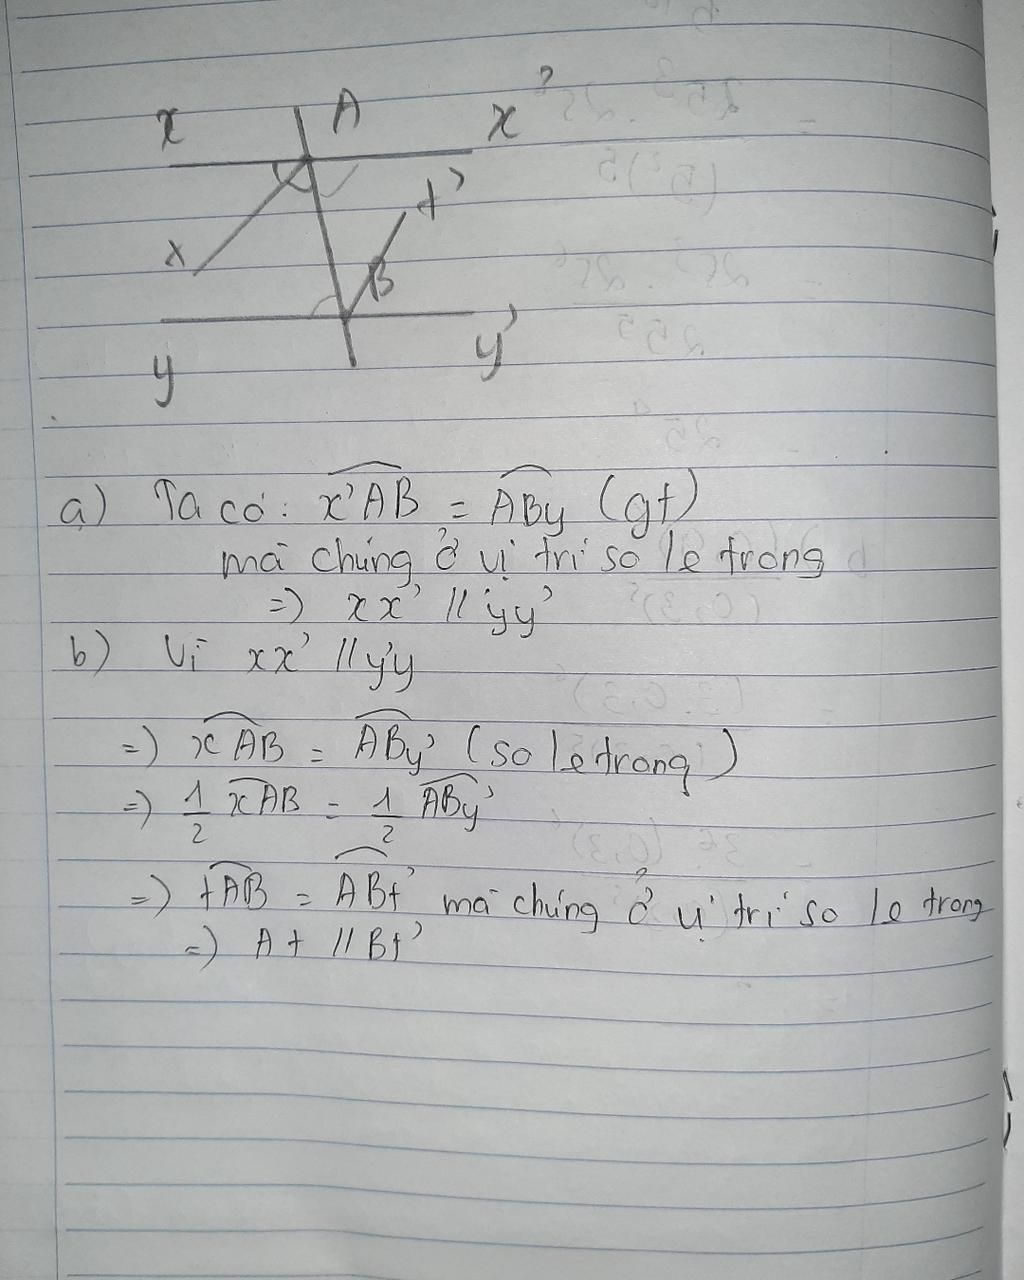 x A x'
t'
x
B
y y'
a) Ta có: x'AB = ABy (gt)
mà chúng ở vị trí so le trong
=) xx' // yy'
b) Vì xx' // y'y
=) xAB = ABy' (so le trong)
=) 1/2 xAB = 1/2 ABy'
=) tAB = ABt' mà chúng ở vị trí so le trong
=) At // Bt'